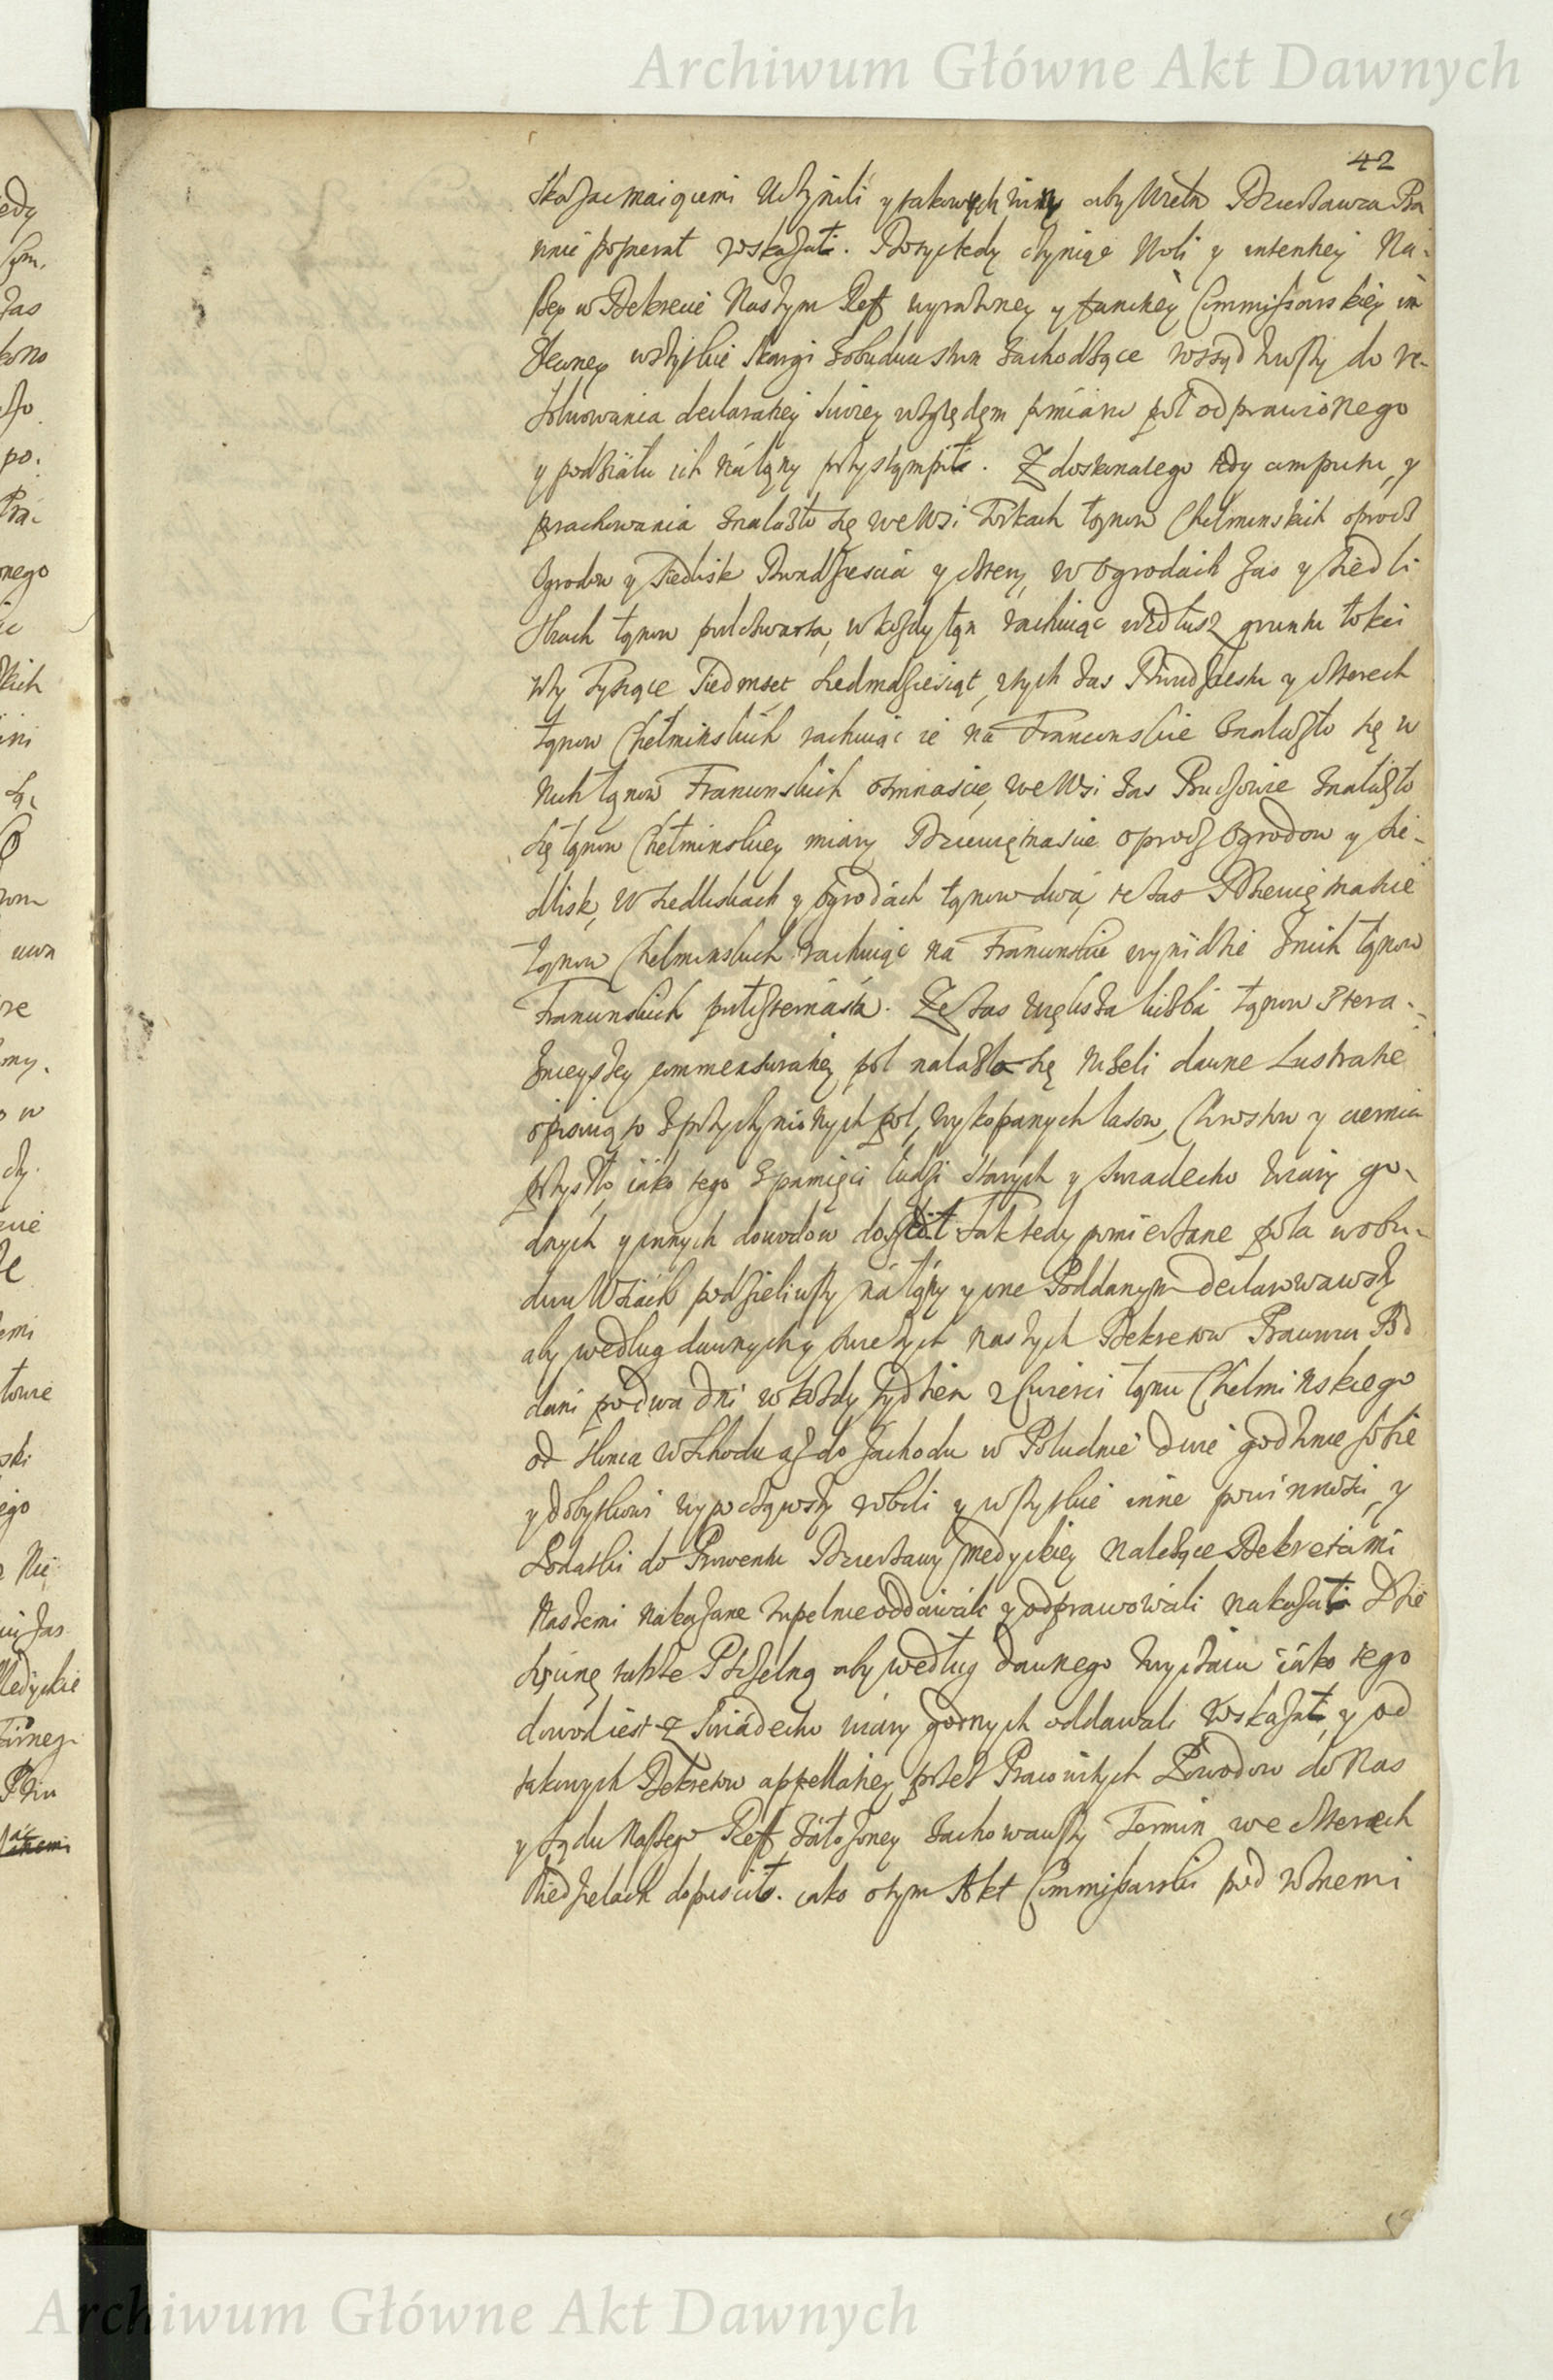 Archiwum Główne Akt Dawnych
42
aby Dzierżawca
wskazał. Dosyć tedy czyniąc Woli y intentiey Na-
szey w Dekrecie Naszym Reff wyrażoney y functiey Commissarskiey
wszytkie skargi zobudwu stron zachodzące wziąwszy do re-
zolwowania declaratiey swoiey względem pomiaru pól odprawionego
y podziału ich ná łany przystąmpił. Z doskonałego tedy computu, y
porachowania znalazło się we Wsi Torkach łanow Chełminskich oprocz
Ogrodow y Siedlisk Dwadziescia y cztery, w Ogrodách zas y siedli
skach łanow pułczwarta, w kozdy łan rachuiąc wzdłusz gruntu łokci
trzy Tysiące Siedmset siedmdziesiąt, z tych zas Dwudziestu y czterech
łanow Chełminskich rachuiąc ie ná Francuskie znalazło się w
nich łanow Francuskich osmnaście, we Wsi zas Buczowie znalazło
się łanow Chełminskiey miary Dziewiętnaście oprocz Ogrodow y sie-
dlisk, W siedliskach y Ogrodách łanow dwá, te zas Dziewiętnascie
łanow Chełminskich rachuiąc ná Francuskie wynidzie z nich łanow
Francuskich Ze zas większa liczbá łanow z tera-
znieyszey commensuratiey pol nalazło się nizeli dawne Lustratie
opisuią to z przyczynionych pol, wykopanych lasow, Chrostow y ciernia
przyszło, iáko tego z pamięci ludzi starych y swiadectw wiary go-
dnych y innych dowodow Tak tedy pomierzone pola w obu-
dwu Wsiách podzieliwszy ná łany y one Poddanym declarowawszy
aby według dawnych y swiezych naszych Dekretow Prawem Pod
dani po dwa dni w kozdy tydzien z cwierci łanu Chełminskiego
od słonca wschodu az do zachodu w Południe dwie godzinie sobie
y dobytkowi wypocząwszy robili y wszytkie inne powinnosci, y
Podatki do Prowentu Dzierzawy Medyckiey nalezące Dekretami
Naszemi nakazane zupełnie oddawáli y odprawowáli nakazał Dzie
sięcinę takze Pszczelną aby według dawnego zwyczaiu iáko tego
dowod iest z swiádectw wiary godnych oddawali wskazał, y od
takowych Dekretow appellatiey przez Pracowitych Powodow do Nas
y sądu Naszego Reff záłozoney zachowawszy Termin we czterech
Niedzielach dopuscił. iako o tym Akt Commissarski pod
Archiwum Główne Akt Dawnych